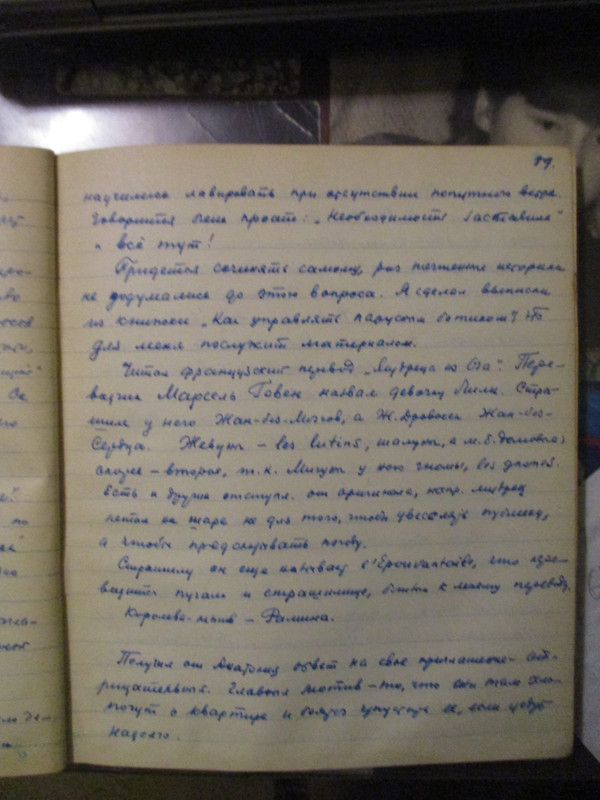 99.
научились лавировать при отсутствии попутного ветра.
Говорится очень просто: „Необходимость заставила"
и всё тут!
Придется сочинять самому, раз почтенные историки
не додумались до этого вопроса. Я сделал выписки
из книжки „Как управлять парусным ботиком"? Это
для меня послужит материалом.
Читал французский перевод „Мудреца из Оза". Пере-
водчик Марсель Говен назвал девочку Лили. Стра-
шила у него Жан-без-Мозгов, а Ж. Дровосек Жан-без-
Сердца. Жевуны – les lutins, шалуны, а м.б. домовые;
скорее – второе, т.к. Мигуны у него гномы, les gnomes.
Есть и другие отступл. от оригинала, напр. мудрец
летал на шаре не для того, чтобы увеселять публику,
а чтобы предсказывать погоду.
Страшилу он еще называет l'Epouvantail, что пере-
водится пугало и страшилище, близко к моему переводу.
Королева-мышь – Рамина.
Получил от Анатолия ответ на свое приглашение – от-
рицательный. Главный мотив – то, что они там хло-
почут о квартире и боятся упустить ее, если уедут
надолго.